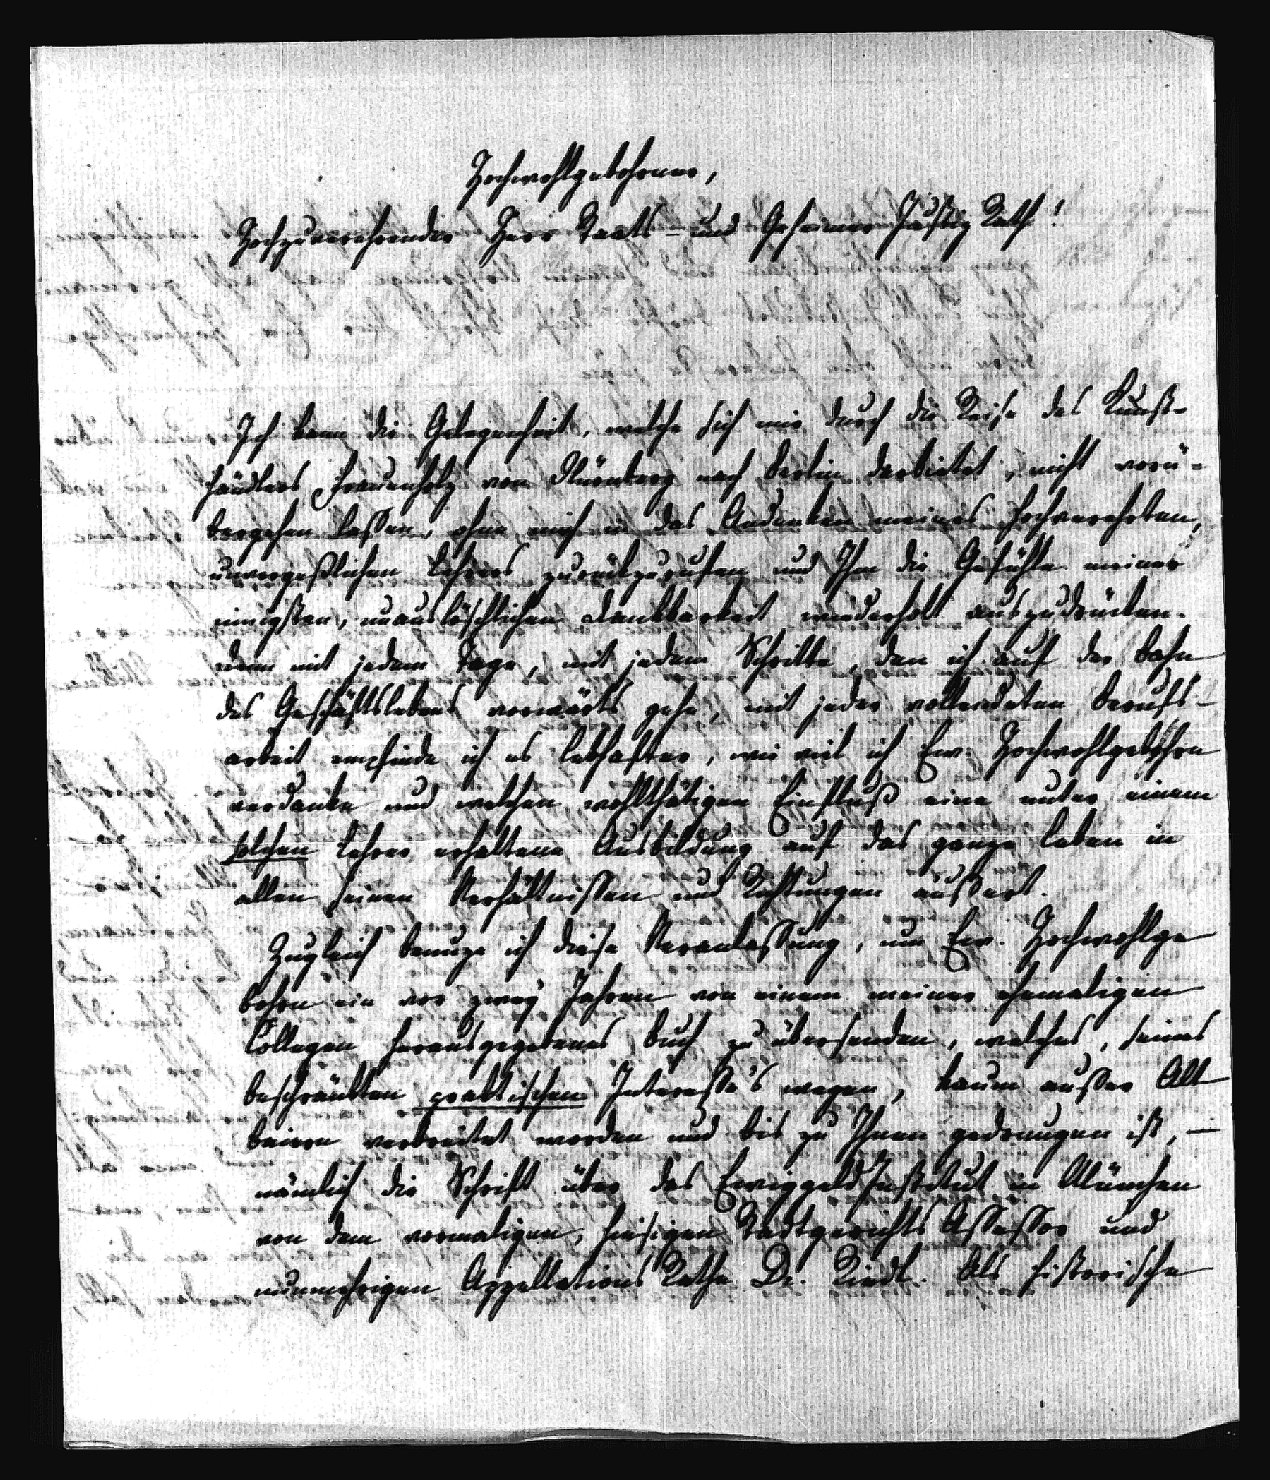 Hochwohlgebohrner,
Hochzuverehrender Herr Staats- und Geheimer Justiz Rath!
Ich kann die Gelegenheit, welche sich mir durch die Reise des Kunst-
händlers Frauenholz von Nürnberg nach Berlin darbietet, nicht vorü-
bergehen lassen, ohne mich in das Andenken meines hochverehrten,
unvergeßlichen Lehrers zurückzurufen und Ihm die Gefühle meiner
innigsten, unauslöschlichen Dankbarkeit wiederholt auszudrücken.
Denn mit jedem Tage, mit jedem Schritte, den ich auf der Bahn
des Geschäftslebens vorwärts gehe, mit jeder vollendeten Berufs-
arbeit empfinde ich es lebhafter, wie viel ich Ew. Hochwohlgebohrn
verdanke und welchen wohlthätigen Einfluß eine unter einem
solchen Lehrer erhaltene Ausbildung auf das ganze Leben in
allen seinen Verhältnissen und Richtungen äussert.
Zugleich benuze ich diese Veranlassung, um Ew. Hochwohlge
bohrn ein vor zwey Jahren von einem meiner ehemaligen
Collegen herausgegebenes Buch zu übersenden, welches, seines
beschränkten praktischen Interesse's wegen, kaum ausser Alt
baiern verbreitet worden und bis zu Ihnen gedrungen ist, —
nämlich die Schrift über das Ewiggeld Institut in München
von dem vormaligen, hiesigen Stadtgerichts Assessor und
nunmehrigen Appellations Rathe Dr. Riedl. Als historische